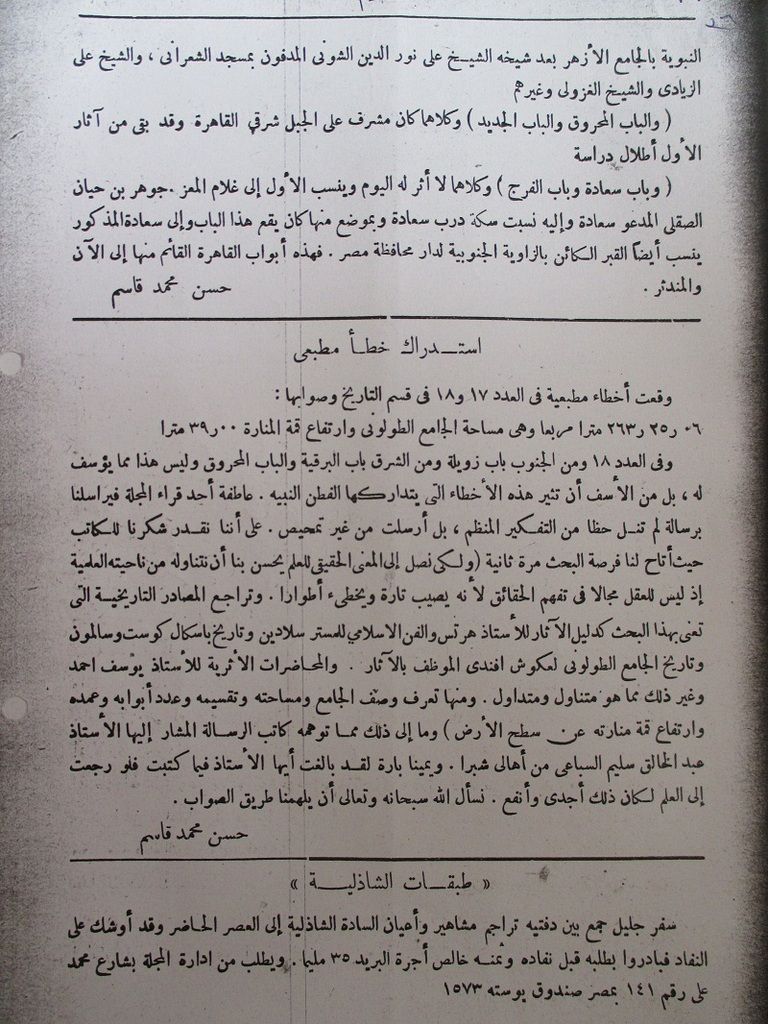 النبوية بالجامع الأزهر بعد شيخه الشيخ على نور الدين الشونى المدفون بمسجد الشعرانى ، والشيخ على
الزيادى والشيخ الغزولى وغيرهم
( والباب المحروق والباب الجديد ) وكلاهما كان مشرف على الجبل شرقي القاهرة وقد بقى من آثار
الأول أطلال دراسة
( وباب سعادة وباب الفرج ) وكلاهما لا أثر له اليوم وينسب الأول إلى غلام المعز . جوهر بن حيان
الصقلى المدعو سعادة وإليه نسبت سكة درب سعادة وبموضع منها كان يقع هذا الباب وإلى سعادة المذكور
ينسب أيضاً القبر الكائن بالزاوية الجنوبية لدار محافظة مصر . فهذه أبواب القاهرة القائم منها إلى الآن
والمندثر .
حسن محمد قاسم
استدراك خطأ مطبعى
وقعت أخطاء مطبعية فى العدد ١٧ و ١٨ فى قسم التاريخ وصوابها :
٠٦ ر ٢٥ ر ٢٦٣ مترا مربعا وهى مساحة الجامع الطولونى وارتفاع قمة المنارة ٠٠ ر ٣٩ مترا
وفى العدد ١٨ ومن الجنوب باب زويلة ومن الشرق باب البرقية والباب المحروق وليس هذا مما يؤسف
له ، بل من الأسف أن تثير هذه الأخطاء التى يتداركها الفطن النبيه . عاطفة أحد قراء المجلة فيراسلنا
برسالة لم تنل حظا من التفكير المنظم ، بل أرسلت من غير تمحيص . على أننا نقدر شكرنا للكاتب
حيث أتاح لنا فرصة البحث مرة ثانية ( ولكى نصل إلى المعنى الحقيقى للعلم يحسن بنا أن نتناوله من ناحيته العلمية
إذ ليس للعقل مجالا فى تفهم الحقائق لأنه يصيب تارة ويخطىء أطوارا . وتراجع المصادر التاريخية التى
تعنى بهذا البحث كدليل الآثار للأستاذ هرتس والفن الاسلامى للمستر سلادين وتاريخ باسكال كوست وسالمون
وتاريخ الجامع الطولونى لعكوش افندى الموظف بالآثار . والمحاضرات الأثرية للأستاذ يوسف احمد
وغير ذلك مما هو متناول ومتداول . ومنها تعرف وصف الجامع ومساحته وتقسيمه وعدد أبوابه وعمده
وارتفاع قمة منارته عن سطح الأرض ) وما إلى ذلك مما توهمه كاتب الرسالة المشار إليها الأستاذ
عبد الخالق سليم السباعى من أهالى شبرا . ويمينا بارة لقد بالغت أيها الأستاذ فيما كتبت فلو رجعت
إلى العلم لكان ذلك أجدى وأنفع . نسأل الله سبحانه وتعالى أن يلهمنا طريق الصواب .
حسن محمد قاسم
« طبقات الشاذلية »
سفر جليل جمع بين دفتيه تراجم مشاهير وأعيان السادة الشاذلية إلى العصر الحاضر وقد أوشك على
النفاد فبادروا بطلبه قبل نفاده وثمنه خالص أجرة البريد ٣٥ مليما . ويطلب من ادارة المجلة بشارع محمد
على رقم ١٤١ بمصر صندوق بوسته ١٥٧٣